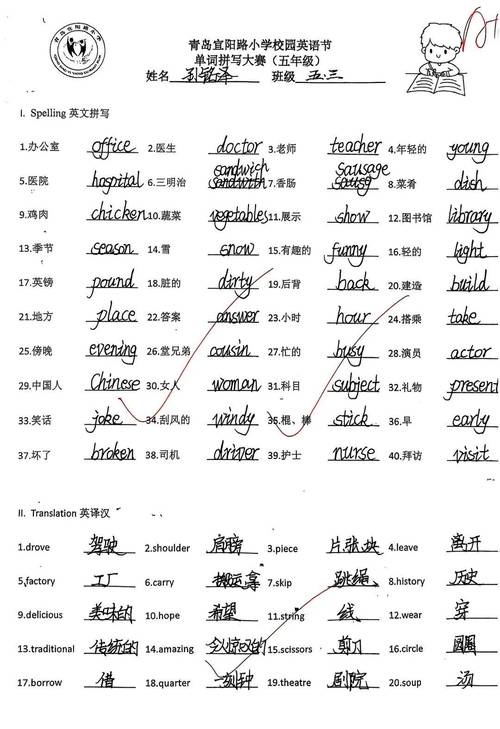 青岛宜阳路小学校园英语节
单词拼写大赛（五年级）
姓名 孙铭泽 班级 五.三
I. Spelling 英文拼写
1.办公室 office 2.医生 doctor 3.老师 teacher 4.年轻的 young
5.医院 hospital 6.三明治 sandwich 7.香肠 sausage 8.菜肴 dish
9.鸡肉 chicken 10.蔬菜 vegetables 11.展示 show 12.图书馆 library
13.季节 season 14.雪 snow 15.有趣的 funny 16.轻的 light
17.英镑 pound 18.脏的 dirty 19.后背 back 20.建造 build
21.地方 place 22.答案 answer 23.小时 hour 24.搭乘 take
25.傍晚 evening 26.堂兄弟 cousin 27.忙的 busy 28.演员 actor
29.中国人 Chinese 30.女人 woman 31.科目 subject 32.礼物 present
33.笑话 joke 34.刮风的 windy 35.棍、棒 stick 36.早 early
37.坏了 broken 38.司机 driver 39.护士 nurse 40.拜访 visit
II. Translation 英译汉
1.drove 驾驶 2.shoulder 肩膀 3.piece 片.张.块 4.leave 离开
5.factory 工厂 6.carry 搬运拿 7.skip 跳绳 8.history 历史
9.delicious 美味的 10.hope 希望 11.string 线 12.wear 穿
13.traditional 传统的 14.amazing 令人惊叹的 15.scissors 剪刀 16.circle 圆圈
17.borrow 借 18.quarter 一刻钟 19.theatre 剧院 20.soup 汤